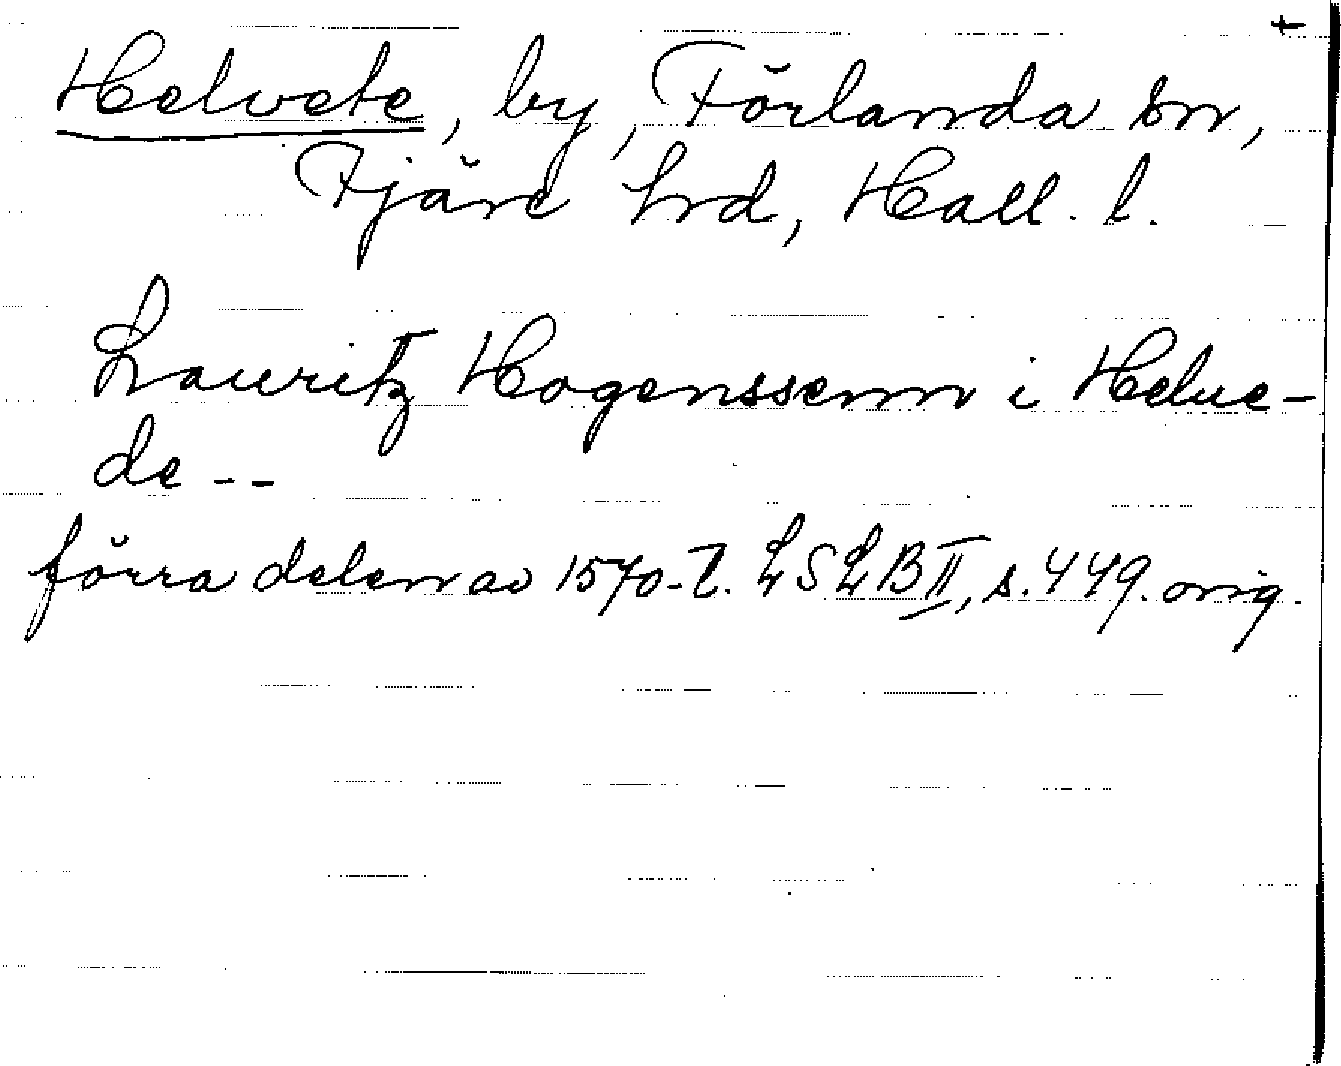 Helvete, by, Förlanda sn,
Fjäre hrd, Hall. l.
Lauritz Hogenssenn i Helue-
de --
förra delen av 1570-t. LSLB II, s. 449. orig.